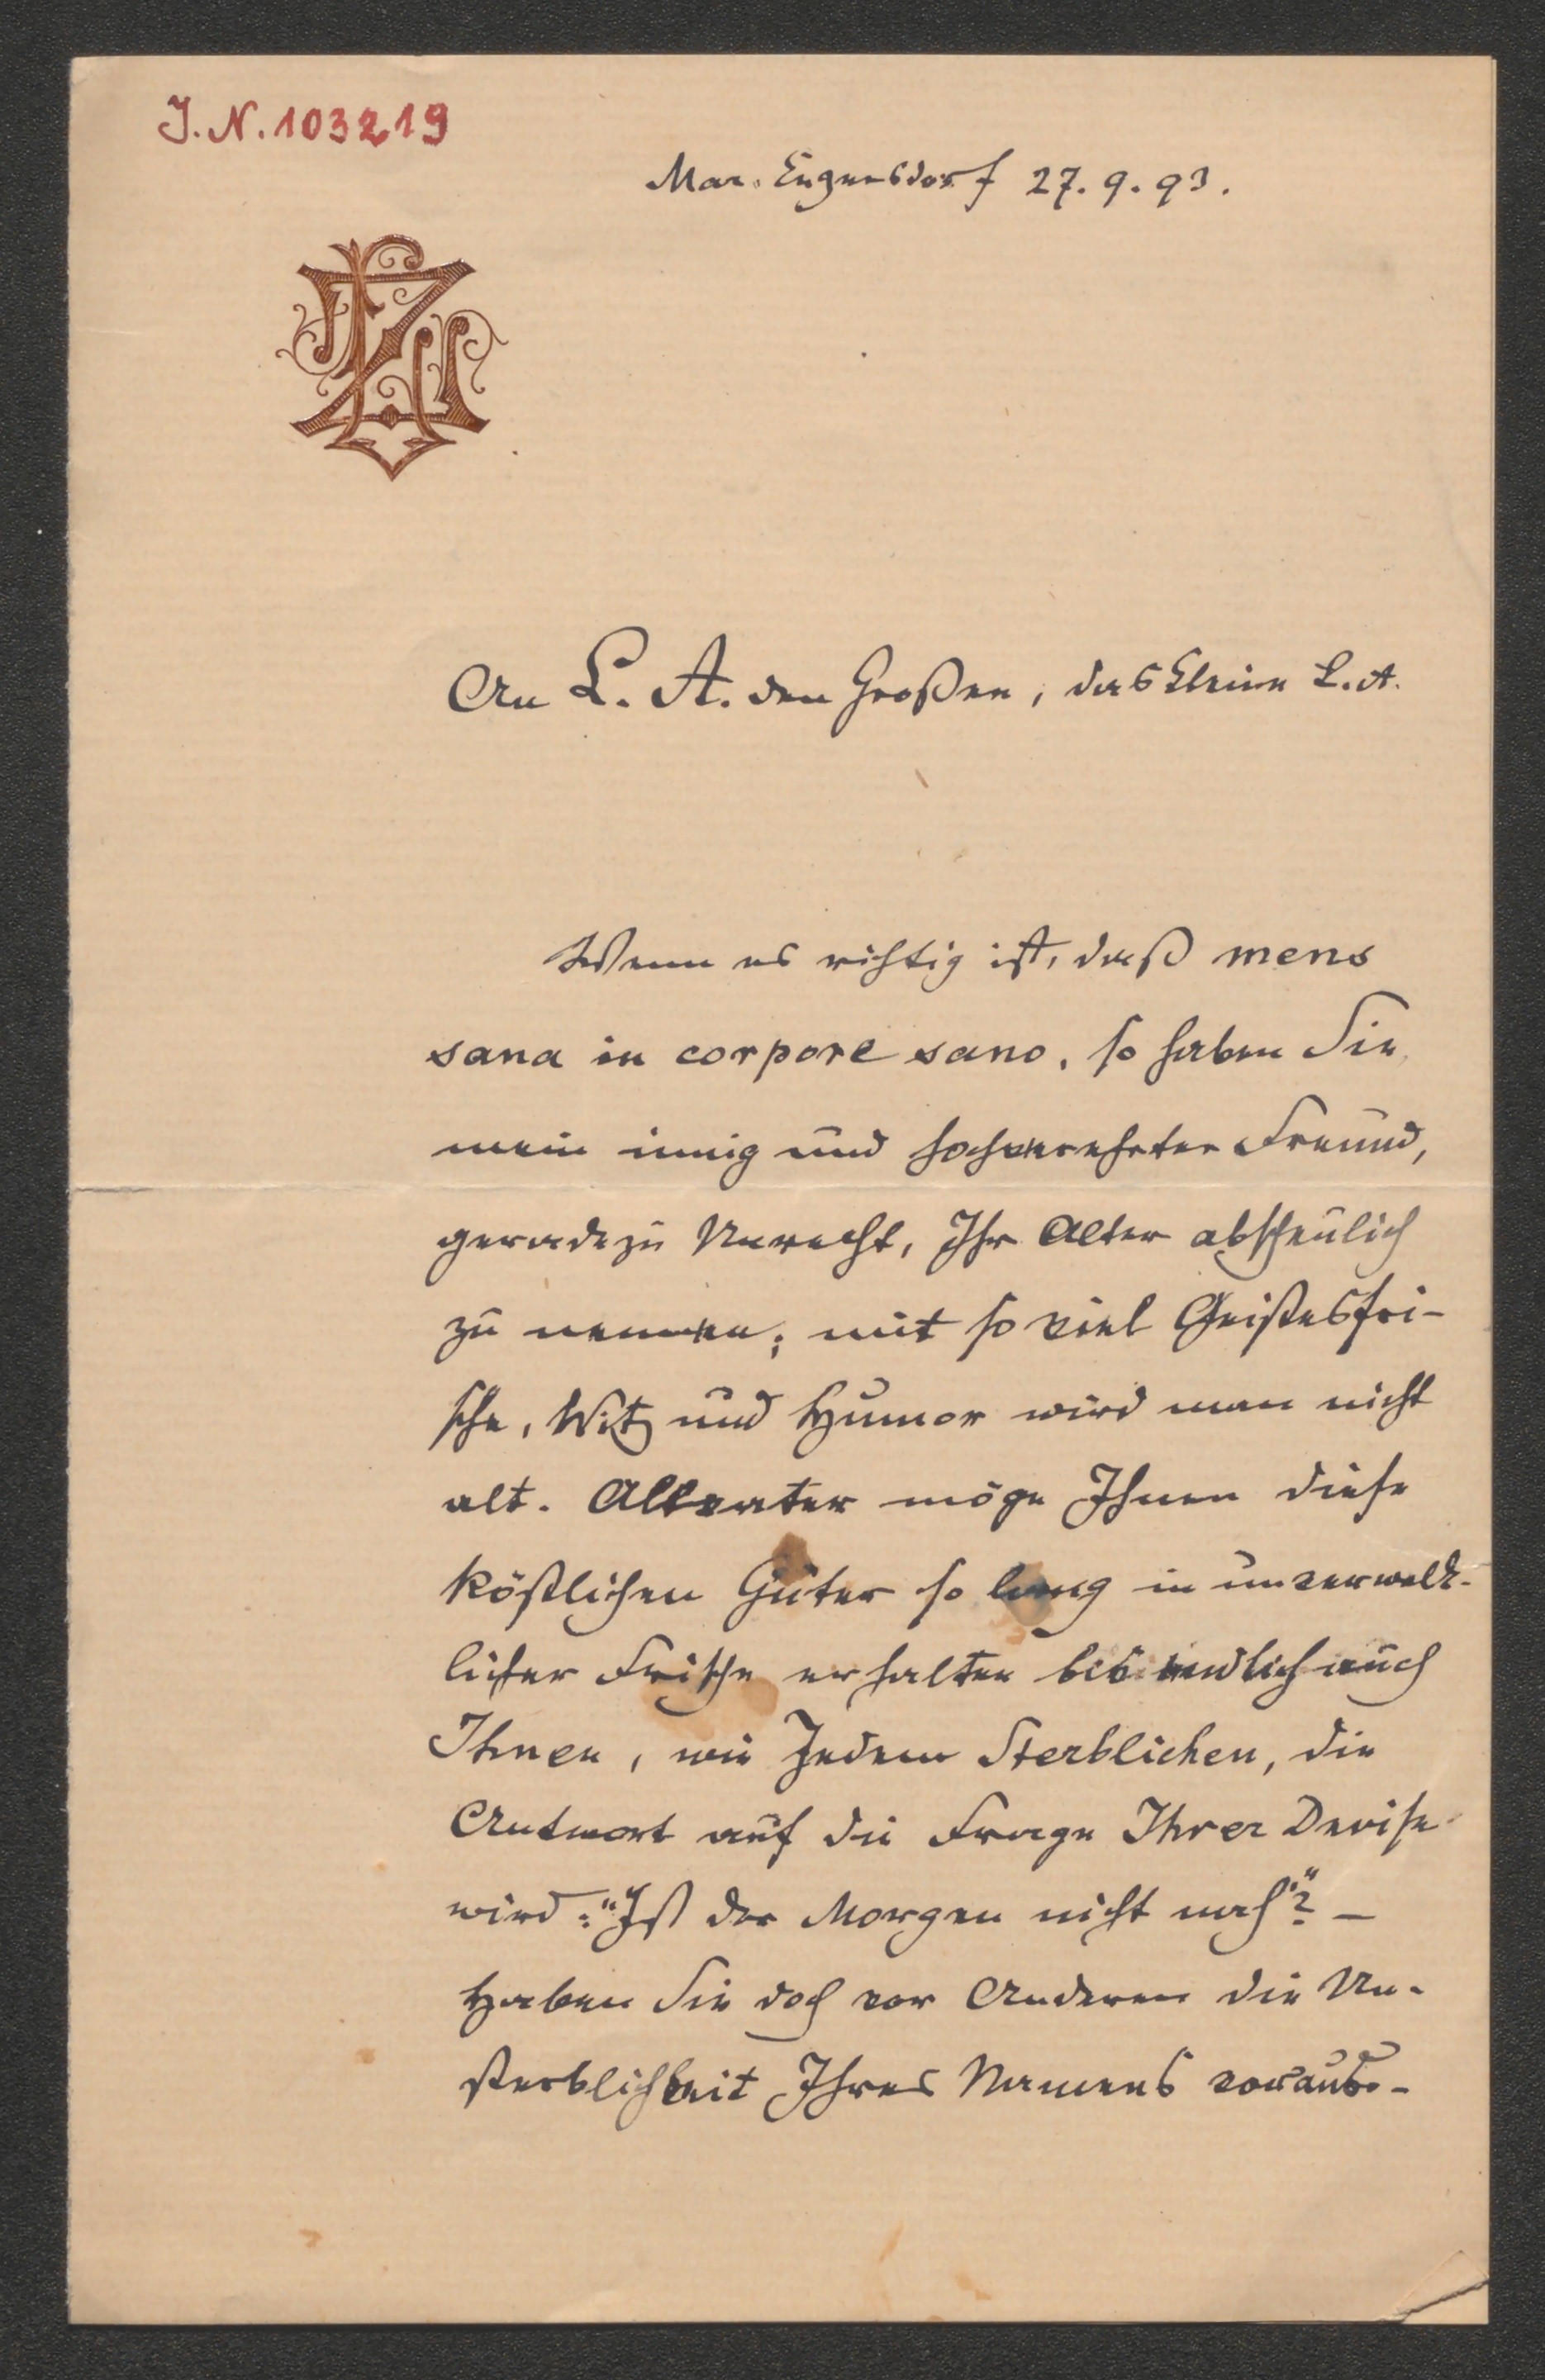 J. N. 103219
Mar. Enzersdorf 27. 9. 93.
An L. A. den Großen, das kleine L. A.
Wenn es richtig ist, daß mens
sana in corpore sano, so haben Sie,
mein innig und hochverehrter Freund,
geradezu Unrecht, Ihr Alter abscheulich
zu nennen; mit so viel Geistesfri-
sche, Witz und Humor wird man nicht
alt. Allvater möge Ihnen diese
köstlichen Güter so lang in unverwelk-
licher Frische erhalten bis endlich auch
Ihnen, wie Jedem Sterblichen, die
Antwort auf die Frage Ihrer Devise
wird: "Ist der Morgen nicht nah"? –
Haben Sie doch vor Anderen die Un-
sterblichkeit Ihres Namens voraus. –